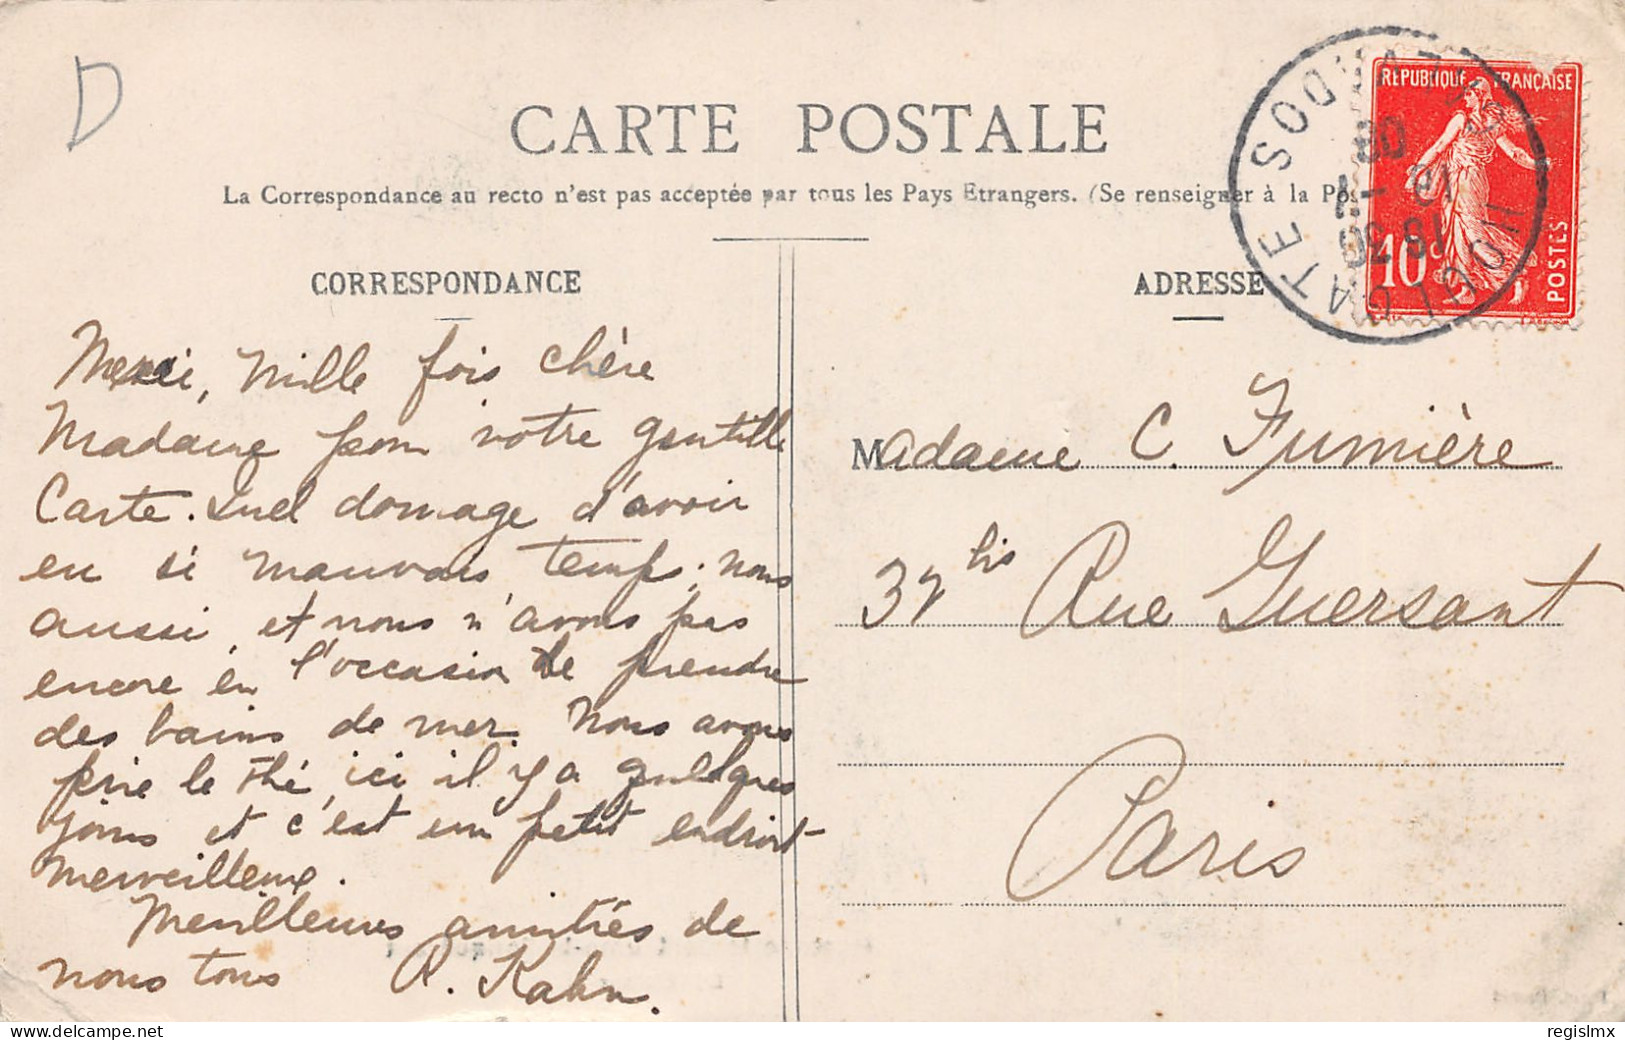 D
CARTE POSTALE
La Correspondance au recto n'est pas acceptée par tous les Pays Etrangers. (Se renseigner à la Pos
CORRESPONDANCE
Merci, mille fois chère
Madame pour votre gentille
Carte. Quel domage d'avoir
eu si mauvais temps; nous
aussi, et nous n'avons pas
encore eu l'occasion de prendre
des bains de mer. Nous avons
prie le thé, ici il y a quelques
jours et c'est un petit endroit
merveilleux.
Meilleures amitiés de
nous tous R. Kahn.
ADRESSE
Madame C. Fumière
37 bis Rue Guersant
Paris
REPUBLIQUE FRANÇAISE
10 c
POSTES
18 30
08
regislmx